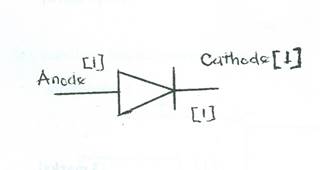 [1]
Anode
Cathode [1]
[1]